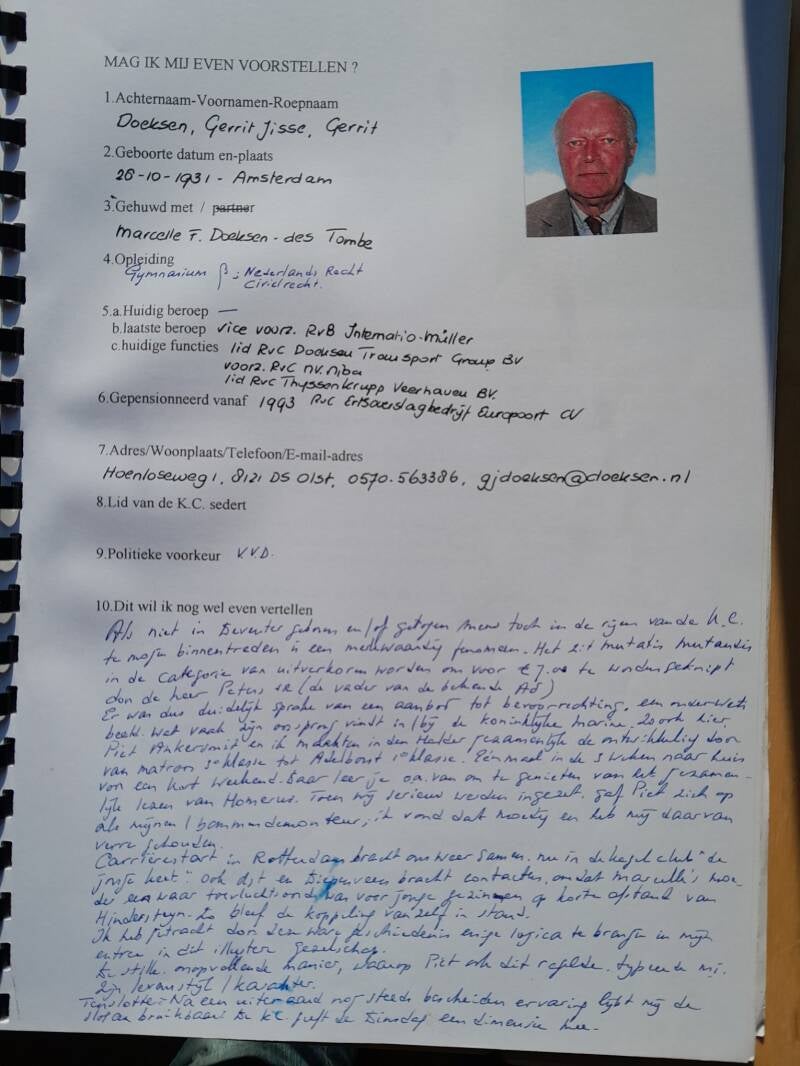 MAG IK MIJ EVEN VOORSTELLEN ?
1.Achternaam-Voornamen-Roepnaam
Doeksen, Gerrit Jisse, Gerrit
2.Geboorte datum en-plaats
26-10-1931 - Amsterdam
3.Gehuwd met / partner
Marcelle F. Doeksen - des Tombe
4.Opleiding
Gymnasium β ; Nederlands Recht
Civielrecht.
5.a.Huidig beroep —
b.laatste beroep vice voorz. RvB Internatio-Müller
c.huidige functies lid RvC Doeksen Transport Group BV
voorz. RvC NV. Niba
lid RvC Thyssenkrupp Veerhaven BV.
6.Gepensionneerd vanaf 1993 RvC Ertsoverslagbedrijf Europoort CV
7.Adres/Woonplaats/Telefoon/E-mail-adres
Hoenloseweg 1, 8121 DS Olst, 0570-563386, gjdoeksen@doeksen.nl
8.Lid van de K.C. sedert
9.Politieke voorkeur V.V.D.
10.Dit wil ik nog wel even vertellen
Als niet in Deventer geboren en/of getogen toch in de rijen van de K.C.
te mogen binnentreden is een merkwaardig fenomeen. Het mutatis mutandis
in de categorie van uitverkoren worden om voor te worden geknipt
door de heer Peters sr (de vader van de bekende Ad)
Er was dus duidelijk sprake van een aanbod tot bevoorrechting, een
wat vaak zijn oorsprong vindt in/bij de koninklijke marine. Zo ook hier.
Piet Ankersmit en ik maakten in den Helder gezamenlijke de ontwikkeling door
van matroos 3e klasse tot Adelborst 1e klasse. Eénmaal in de 3 weken naar huis
voor een kort weekend. Daar leer je o.a. van om te genieten van het gezamen-
lijk lezen van Homerus. Toen wij serieus werden ingezet, gaf Piet zich op
als mijnen / bommendemonteur; ik vond dat moedig en heb mij daarvan
verre gehouden.
Carrièrestart in Rotterdam bracht ons weer samen, nu in de kegelclub "de
jonge heer". Ook Olst en Diepenveen bracht contacten, omdat Marcelle's moe-
der een waar toevluchtsoord was voor jonge gezinnen op korte afstand van
Hindersteyn. Zo bleef de koppeling vanzelf in stand.
Ik heb getracht door deze ware geschiedenis enige logica te brengen in mijn
entree in dit illustere gezelschap.
De stille, onopvallende manier, waarop Piet ook dit regelde, typeerde
zijn levensstijl / karakter.
Tenslotte: Na een uiteraard nog steeds bescheiden ervaring lijkt mij de
slogan bruikbaar: De K.C. geeft de Dinsdag een dimensie mee.